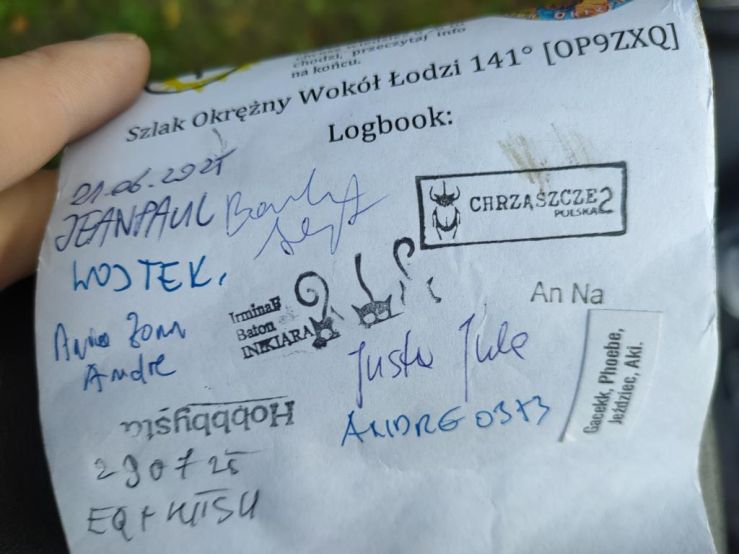 chodzi, przeczytaj info
na końcu.
Szlak Okrężny Wokół Łodzi 141° [OP9ZXQ]
Logbook:
21.06.2025
JEANPAUL
CHRZĄSZCZE2
POLSKA
WOJTEK,
IrminaF
Baton
INIKIARA
An Na
Andre
Justa Jula
Gacekk, Phoebe,
Jeździec, Aki.
Hobbysta
ANDRE0373
290725
EQ+KITSU